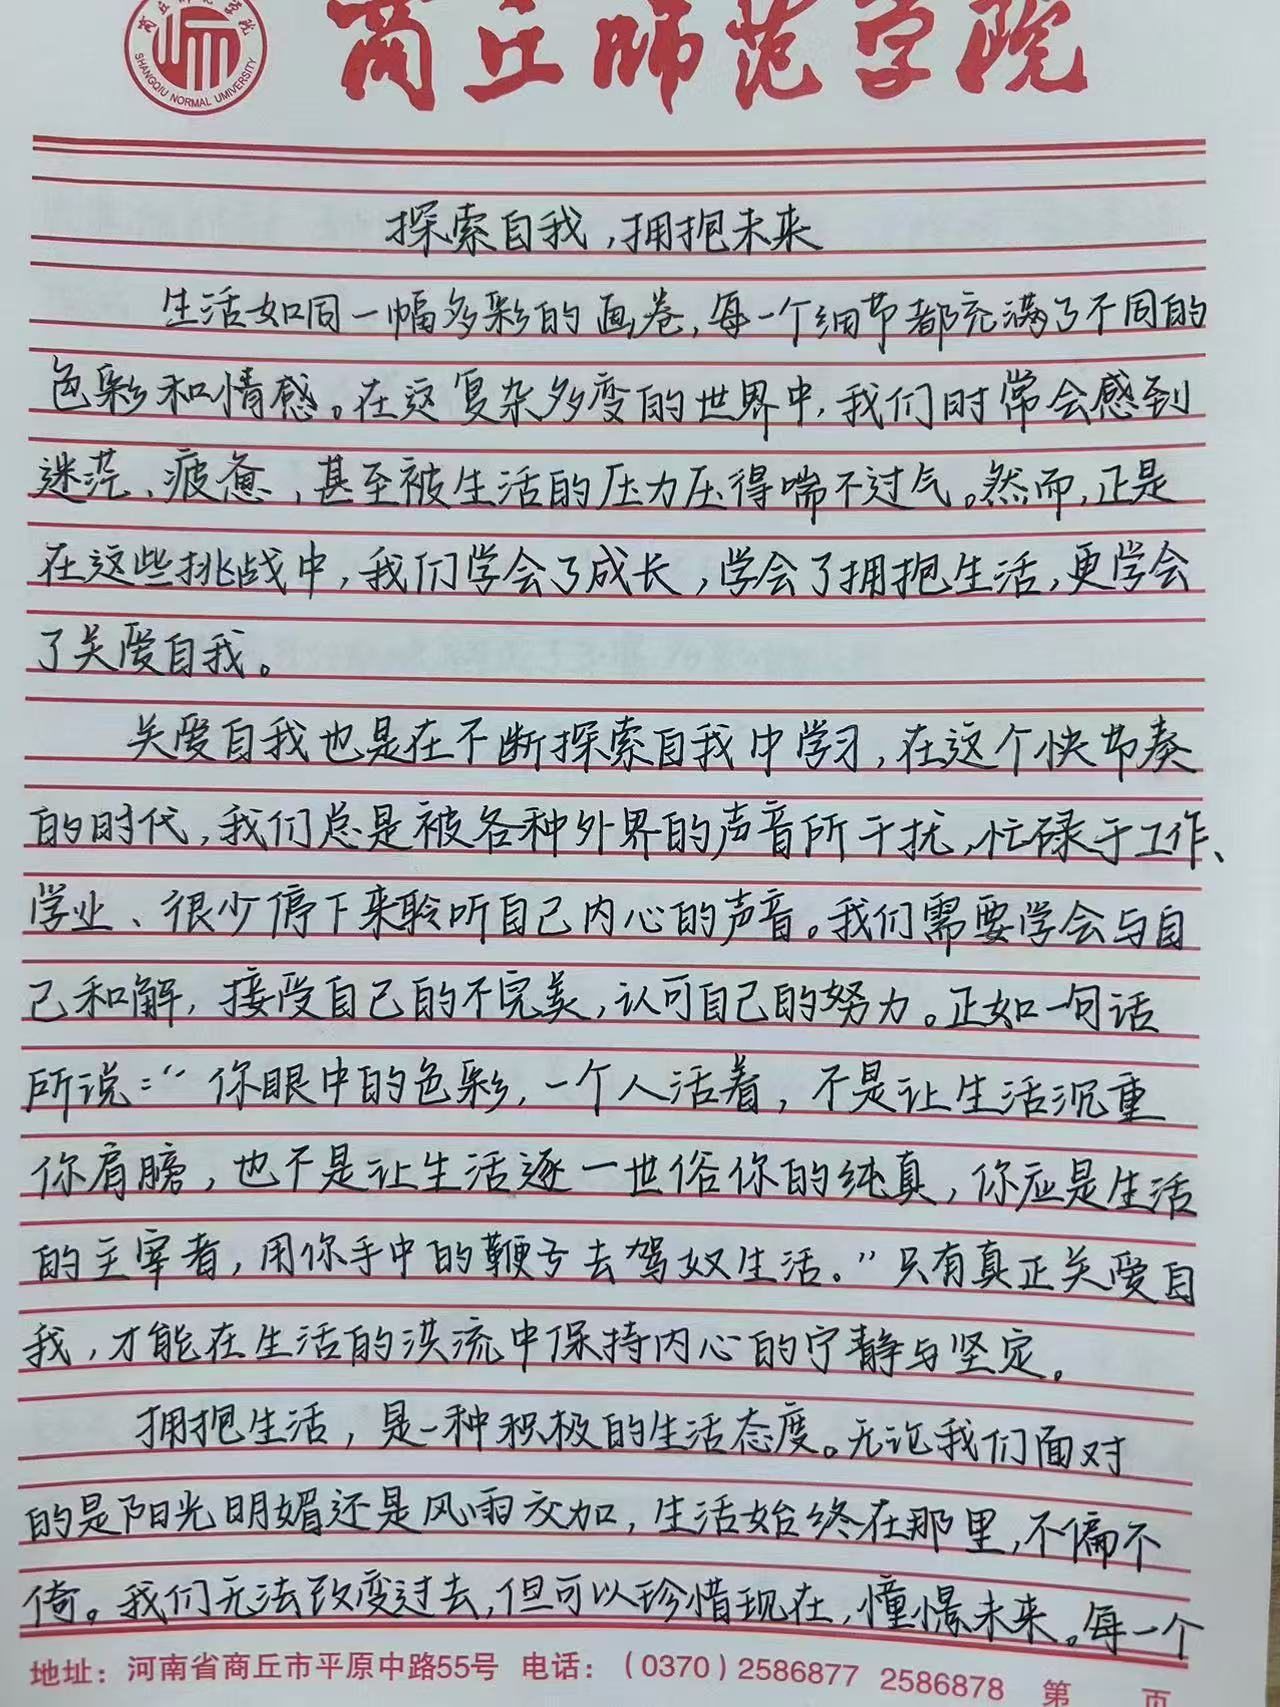 商丘师范学院
SHANGQIU NORMAL UNIVERSITY
探索自我，拥抱未来
生活如同一幅多彩的画卷，每一个细节都充满了不同的
色彩和情感。在这复杂多变的世界中，我们时常会感到
迷茫、疲惫，甚至被生活的压力压得喘不过气。然而，正是
在这些挑战中，我们学会了成长，学会了拥抱生活，更学会
了关爱自我。
关爱自我也是在不断探索自我中学习，在这个快节奏
的时代，我们总是被各种外界的声音所干扰，忙碌于工作、
学业、很少停下来聆听自己内心的声音。我们需要学会与自
己和解，接受自己的不完美，认可自己的努力。正如一句话
所说：“你眼中的色彩，一个人活着，不是让生活沉重
你肩膀，也不是让生活逐一世俗你的纯真，你应是生活
的主宰者，用你手中的鞭子去驾奴生活。”只有真正关爱自
我，才能在生活的洪流中保持内心的宁静与坚定。
拥抱生活，是一种积极的生活态度。无论我们面对
的是阳光明媚还是风雨交加，生活始终在那里，不偏不
倚。我们无法改变过去，但可以珍惜现在，憧憬未来。每一个
地址：河南省商丘市平原中路55号 电话：（0370）2586877 2586878 第 页